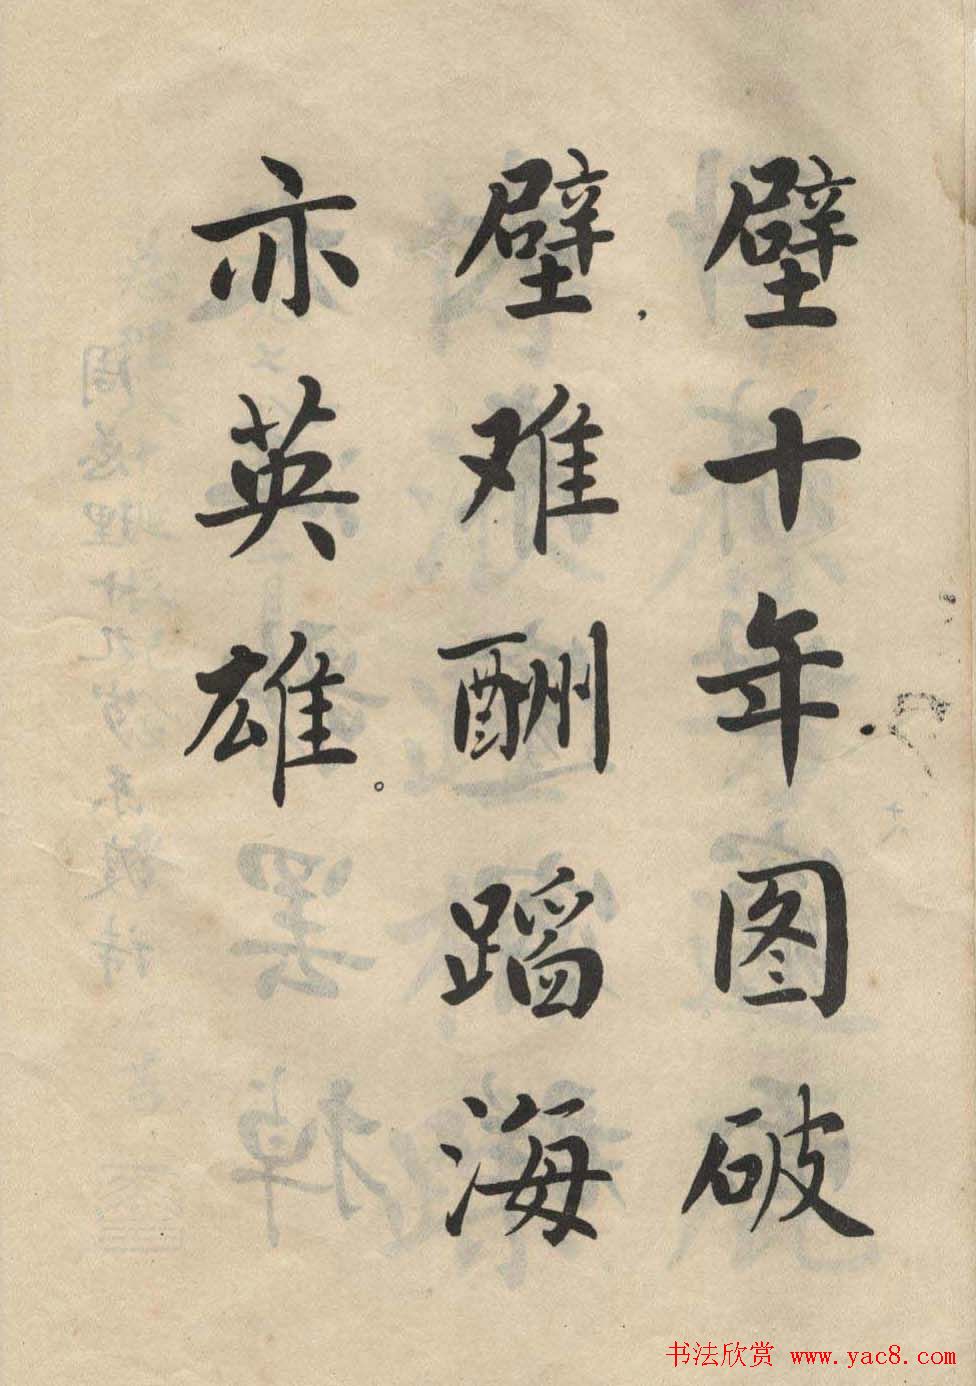 壁十年图破
壁，难酬蹈海
亦英雄。
书法欣赏 www.yac8.com